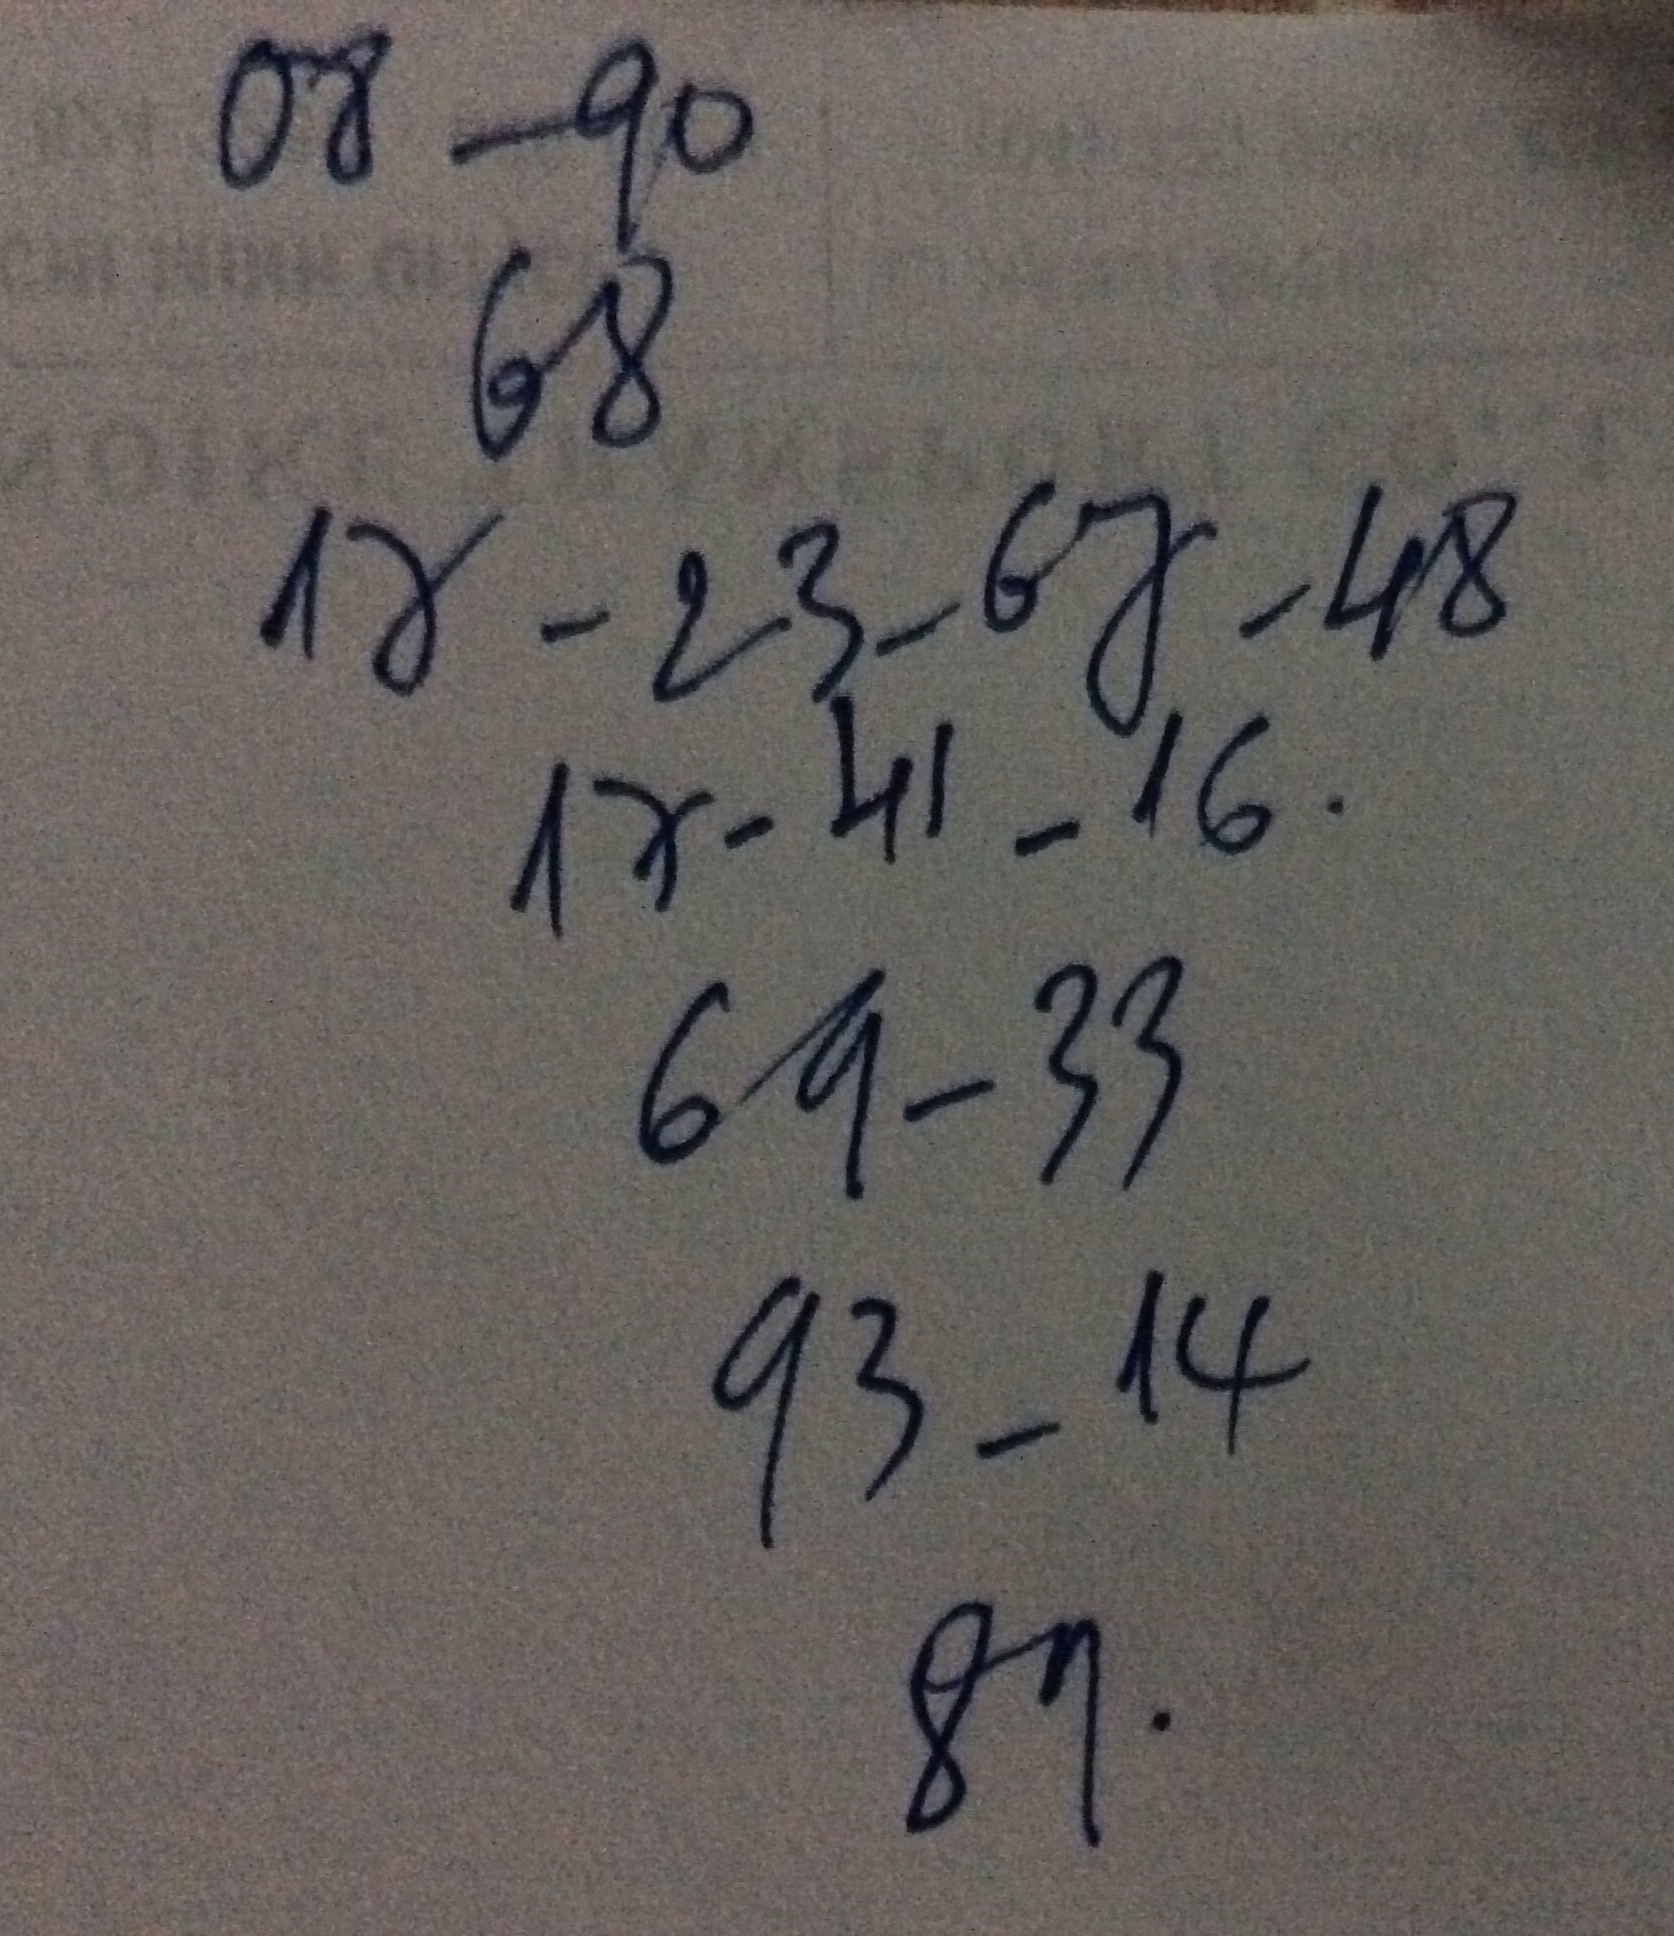 08 - 90
68
18 - 23 - 67 - 48
17 - 41 - 16.
69 - 33
93 - 14
89.